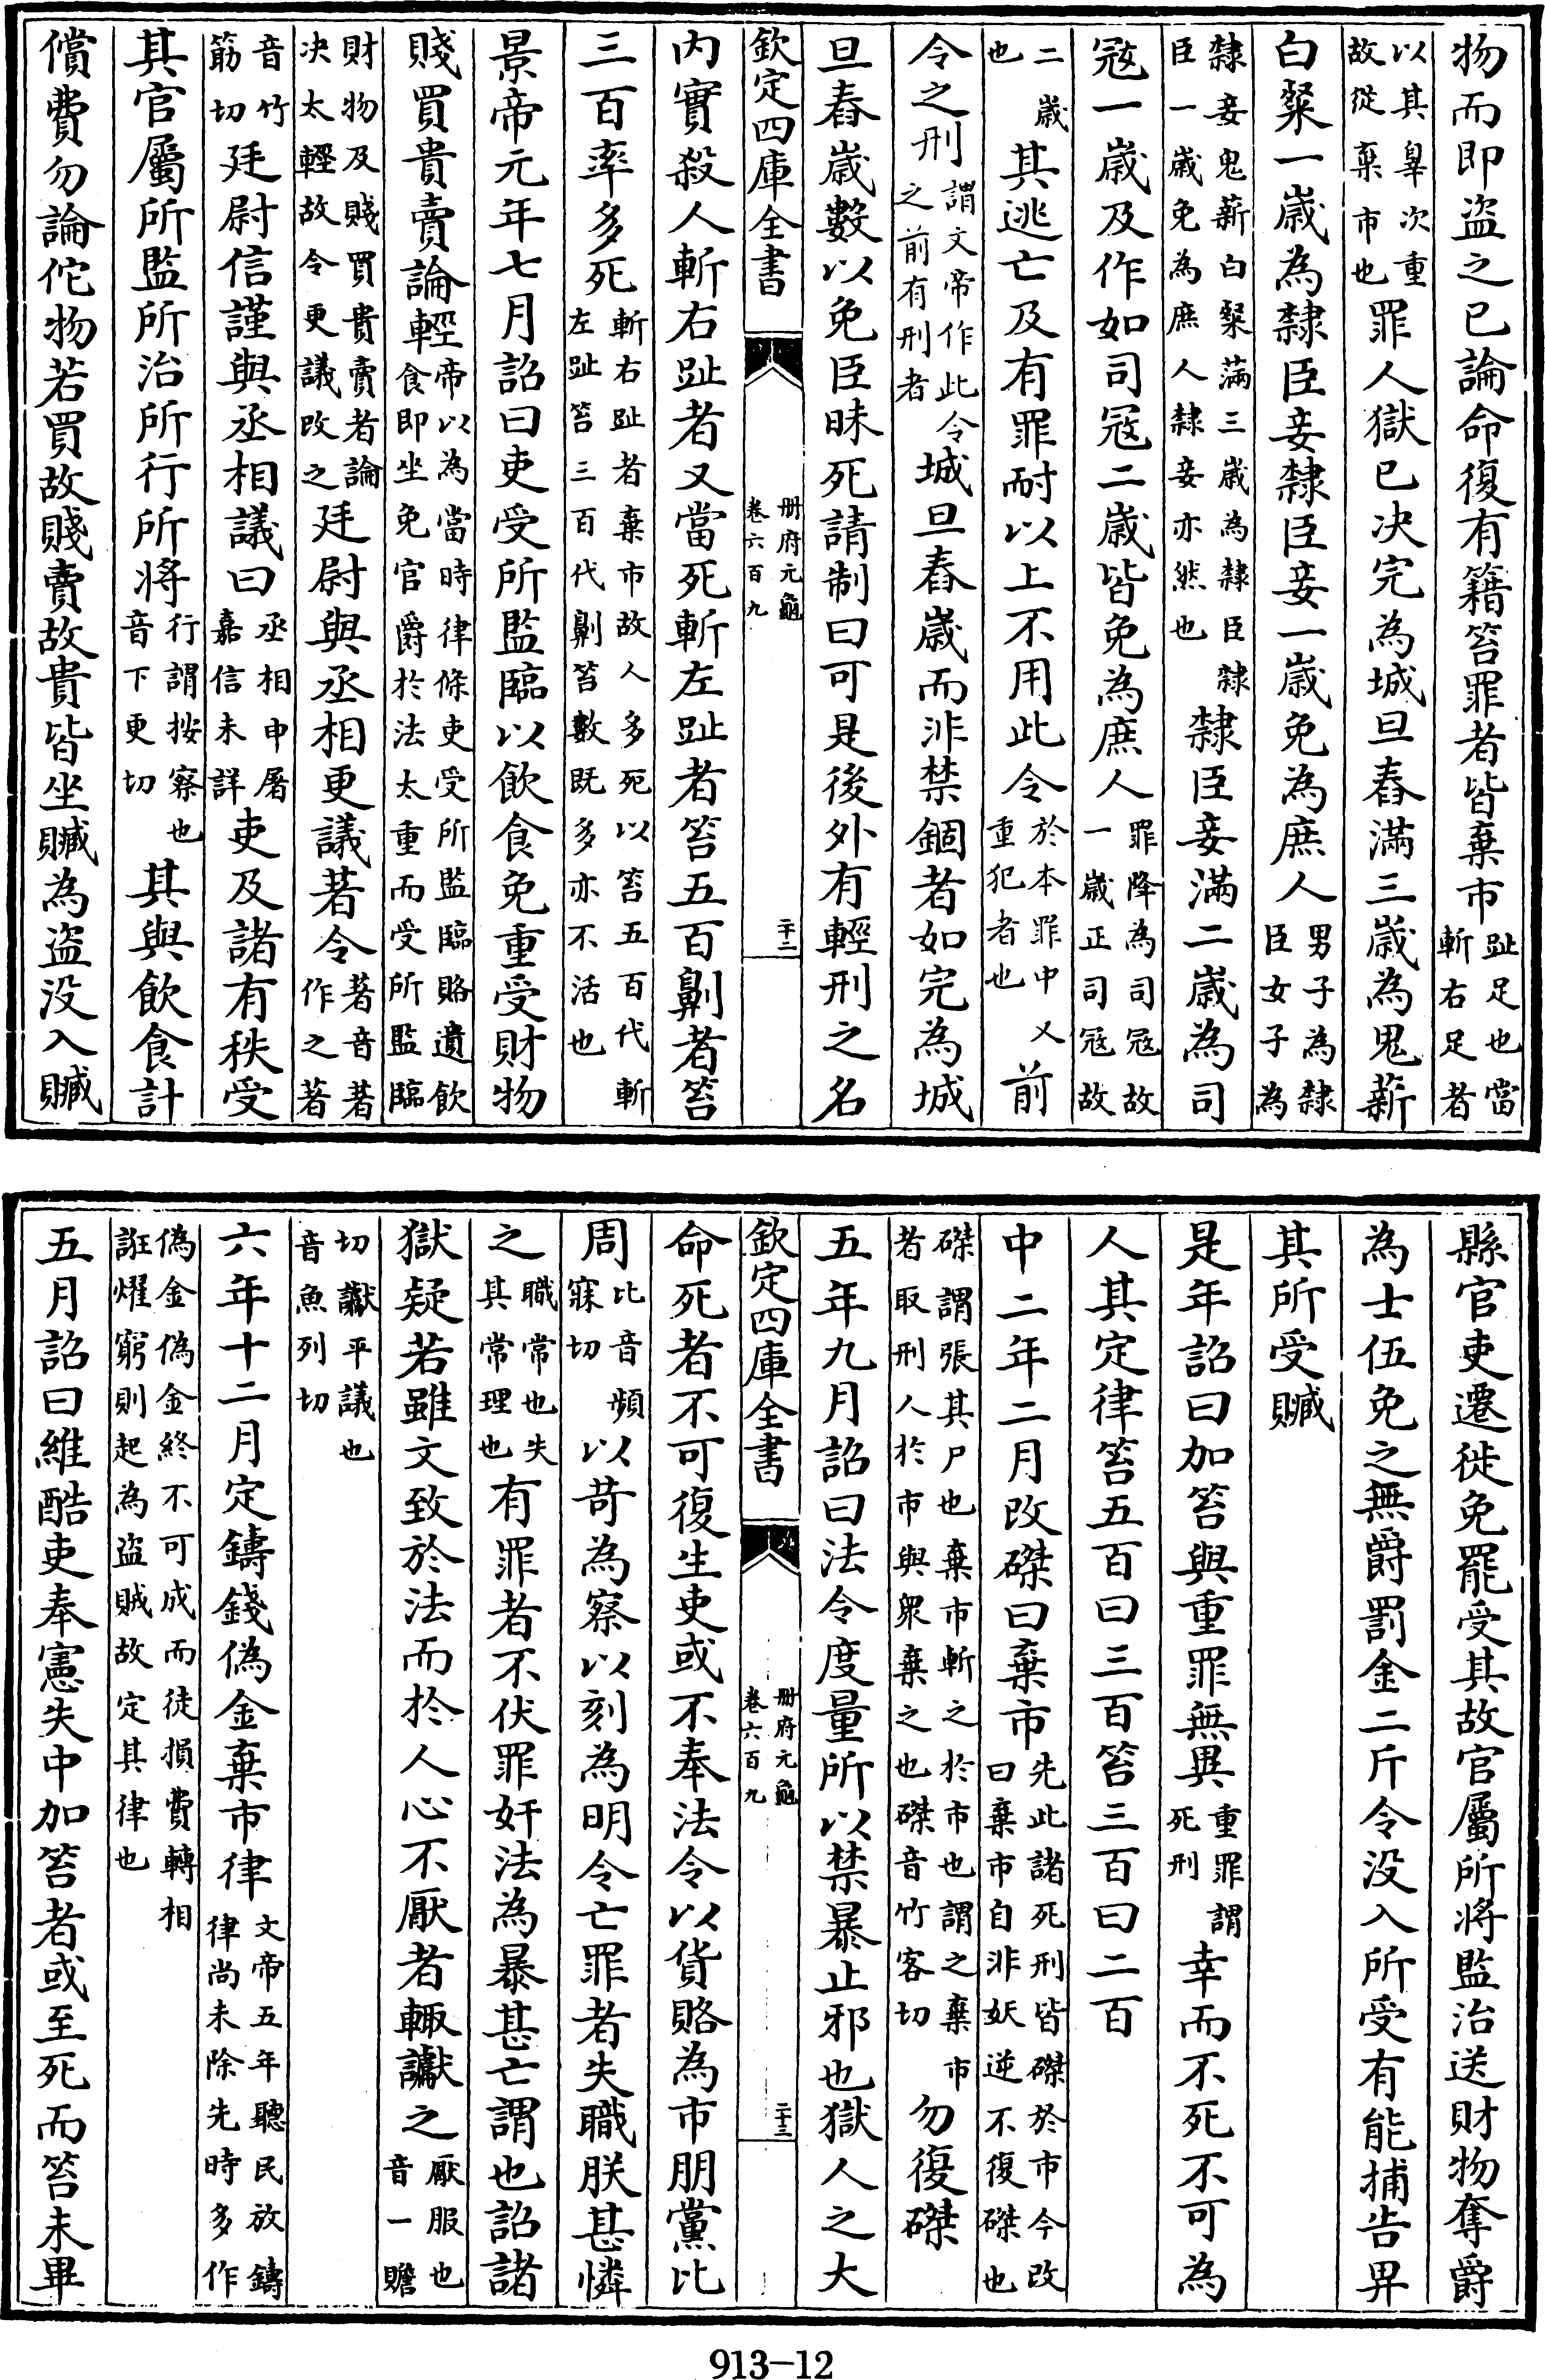 物而即盗之已論命復有籍笞罪者皆棄市趾足也當斬右足者
以其辠次重故從棄市也罪人獄已决完為城旦舂滿三歳為鬼薪
白粲一歳為隸臣妾隸臣妾一歳免為庶人男子為隸臣女子為
隸妾鬼薪白粲滿三歳為隸臣隸臣一歳免為庶人隸妾亦然也隸臣妾滿二歳為司
冦一歳及作如司冦二歳皆免為庶人罪降為司冦故一歳正司冦故
二歳也其逃亡及有罪耐以上不用此令於本罪中又重犯者也前
令之刑謂文帝作此令之前有刑者城旦舂歳而非禁錮者如完為城
旦舂歳數以免臣昧死請制曰可是後外有輕刑之名
欽定四庫全書 册府元龜卷六百九 二十二
内實殺人斬右趾者又當死斬左趾者笞五百劓者笞
三百率多死斬右趾者棄市故人多死以笞五百代斬左趾笞三百代劓笞數既多亦不活也
景帝元年七月詔曰吏受所監臨以飲食免重受財物
賤買貴賣論輕帝以為當時律條吏受所監臨賂遺飲食即坐免官爵於法太重而受所監臨
財物及賤買貴賣者論决太輕故令更議改之廷尉與丞相更議著令著音著作之著
音竹筋切廷尉信謹與丞相議曰丞相申屠嘉信未詳吏及諸有秩受
其官屬所監所治所行所將行謂按察也音下更切其與飲食計
償費勿論佗物若買故賤賣故貴皆坐贓為盗没入贓
縣官吏遷徙免罷受其故官屬所將監治送財物奪爵
為士伍免之無爵罰金二斤令没入所受有能捕告畀
其所受贓
是年詔曰加笞與重罪無異重罪謂死刑幸而不死不可為
人其定律笞五百曰三百笞三百曰二百
中二年二月改磔曰棄市先此諸死刑皆磔於市今改曰棄市自非妖逆不復磔也
磔謂張其尸也棄市斬之於市也謂之棄市者取刑人於市與衆棄之也磔音竹客切勿復磔
五年九月詔曰法令度量所以禁暴止邪也獄人之大
欽定四庫全書 册府元龜卷六百九 二十三
命死者不可復生吏或不奉法令以貨賂為市朋黨比
周比音頻寐切以苛為察以刻為明令亡罪者失職朕甚憐
之職常也失其常理也有罪者不伏罪奸法為暴甚亡謂也詔諸
獄疑若雖文致於法而於人心不厭者輒讞之厭服也音一贍
切讞平議也音魚列切
六年十二月定鑄錢偽金棄市律文帝五年聽民放鑄律尚未除先時多作
偽金偽金終不可成而徒損費轉相誑燿窮則起為盗賊故定其律也
五月詔曰維酷吏奉憲失中加笞者或至死而笞未畢
913-12